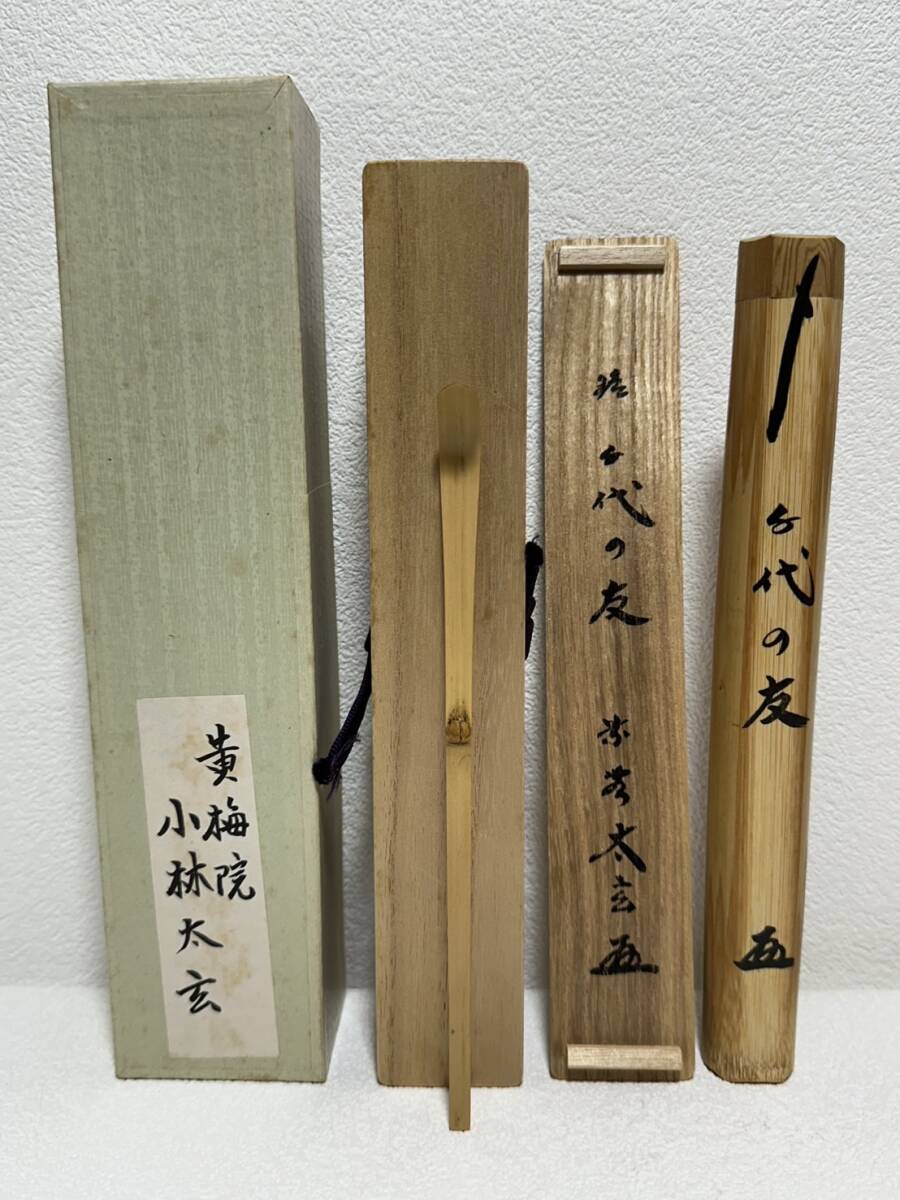 黄梅院
小林太玄
銘 千代の友 紫野 太玄
千代の友